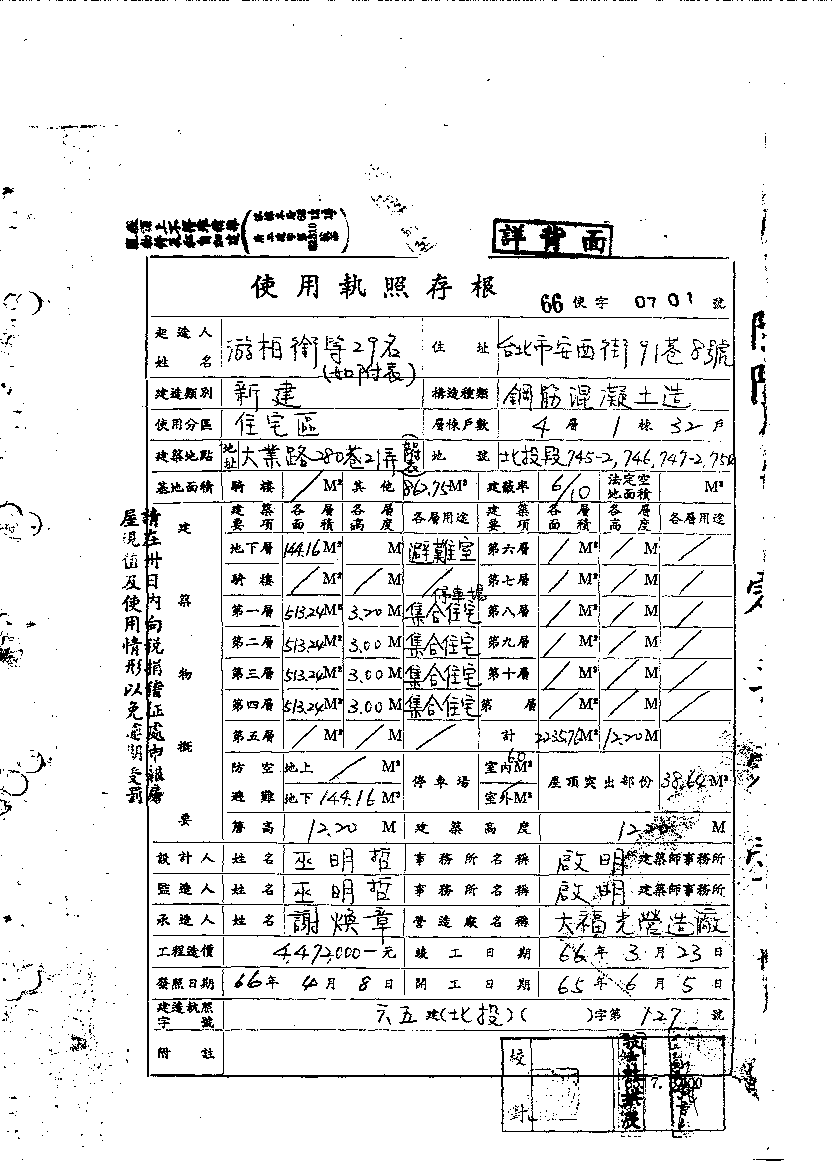 詳背面
使用執照存根 66使字0701號
起造人姓名 游相衛等29名(如附表) 住址 台北市安西街91巷83號
建造類別 新建 構造種類 鋼筋混凝土造
使用分區 住宅區 層棟戶數 4層1棟32戶
建築地點 地址 大業路280巷21弄 地號 北投段745-2,746,747-2,750
基地面積 騎樓 / M² 其他 862.75M² 建蔽率 6/10 法定空地面積 M²
建築要項 各層面積 各層高度 各層用途 建築要項 各層面積 各層高度 各層用途
地下層 144.16M² M 避難室 第六層 / M² / M /
騎樓 / M² / M / 第七層 / M² / M /
停車場
第一層 513.24M² 3.20M 集合住宅 第八層 / M² / M /
第二層 513.24M² 3.00M 集合住宅 第九層 / M² / M /
第三層 513.24M² 3.00M 集合住宅 第十層 / M² / M /
第四層 513.24M² 3.00M 集合住宅 第 層 / M² / M /
第五層 / M² / M / 計 2235.76M² 12.20M
建築物概要
防空避難 地上 / M² 地下 144.16M² 停車場 室內 60 M² 室外 / M² 屋頂突出部份 38.64M²
簷高 12.20 M 建築高度 12.20 M
設計人 姓名 巫明哲 事務所名稱 啟明建築師事務所
監造人 姓名 巫明哲 事務所名稱 啟明建築師事務所
承造人 姓名 謝煥章 營造廠名稱 大福光營造廠
工程造價 4,472,000-元 竣工日期 66年3月23日
發照日期 66年4月8日 開工日期 65年6月5日
建造執照字號 六五建(北投)( )字第127號
附註
校對
請在卅日內向稅捐稽征處申報房
屋現值及使用情形以免逾期受罰